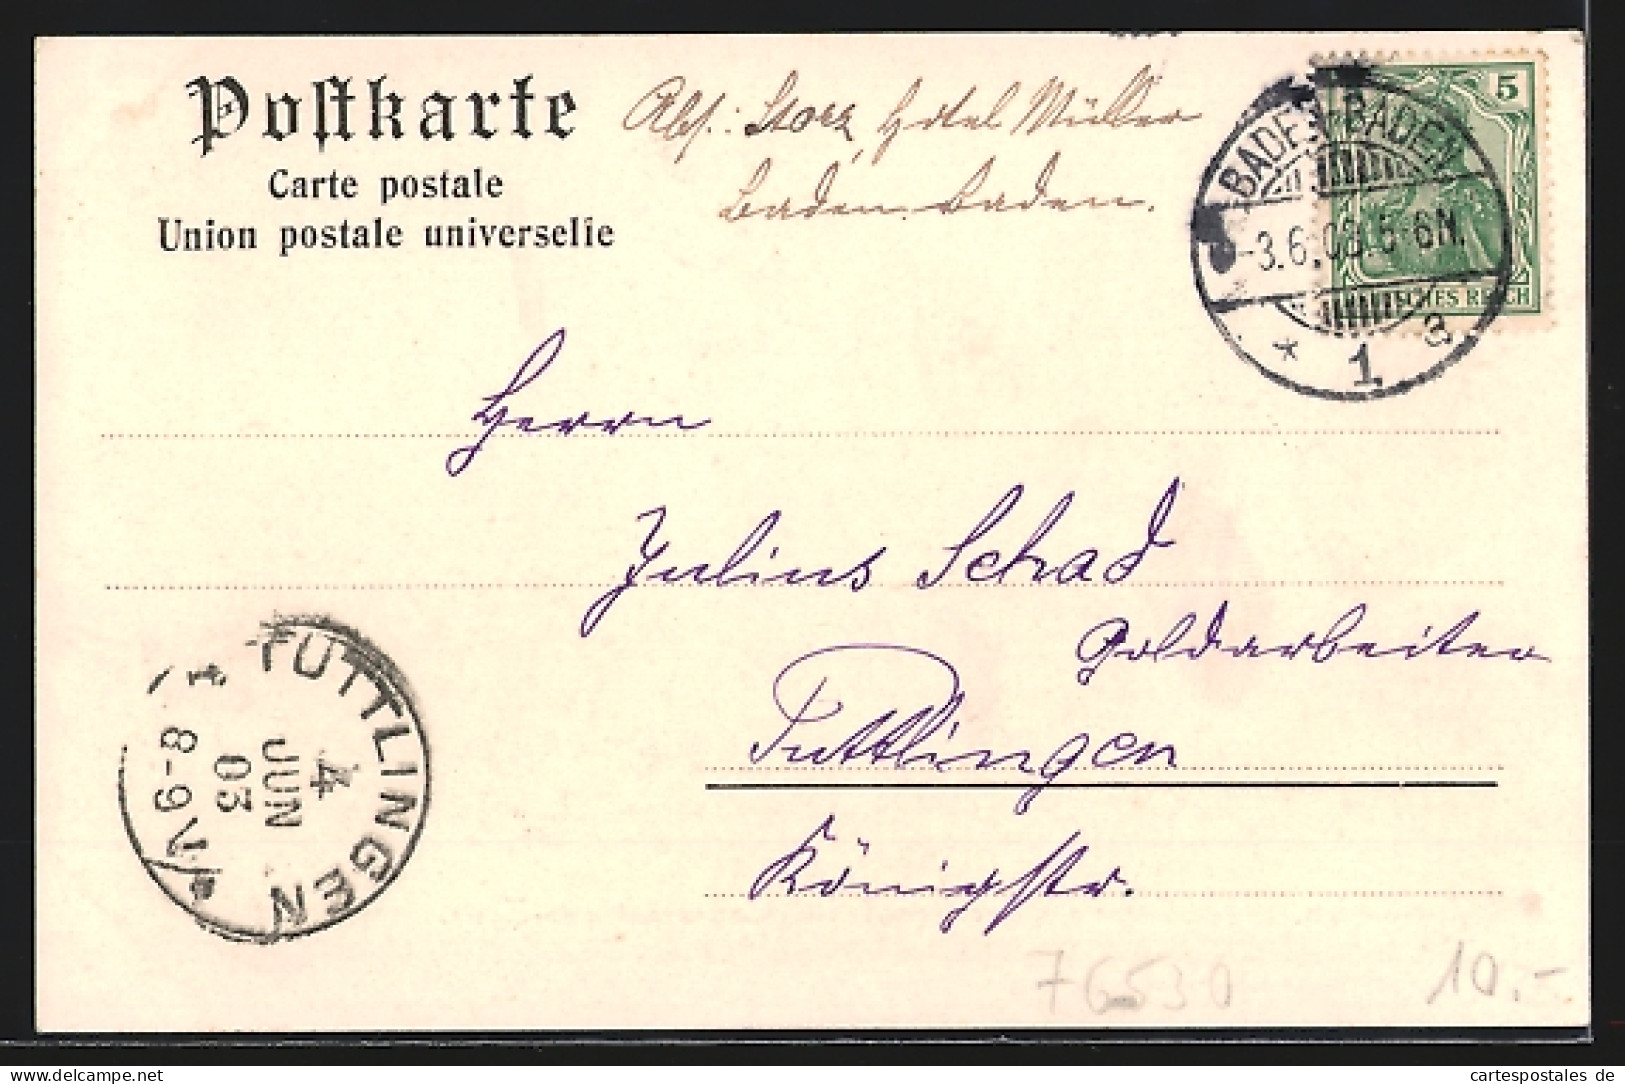 Postkarte
Carte postale
Union postale universelle
Abs.: Storz, Hotel Müller
Baden-Baden.
5
DEUTSCHES REICH
BADEN-BADEN
-3.6.03.5-6N.
* 1 a
Herrn
Julius Schad
Goldarbeiter
Tuttlingen
Königstr.
TUTTLINGEN
4
JUN
03
8-9V
76530
10.-
cartespostales de
www.delcampe.net